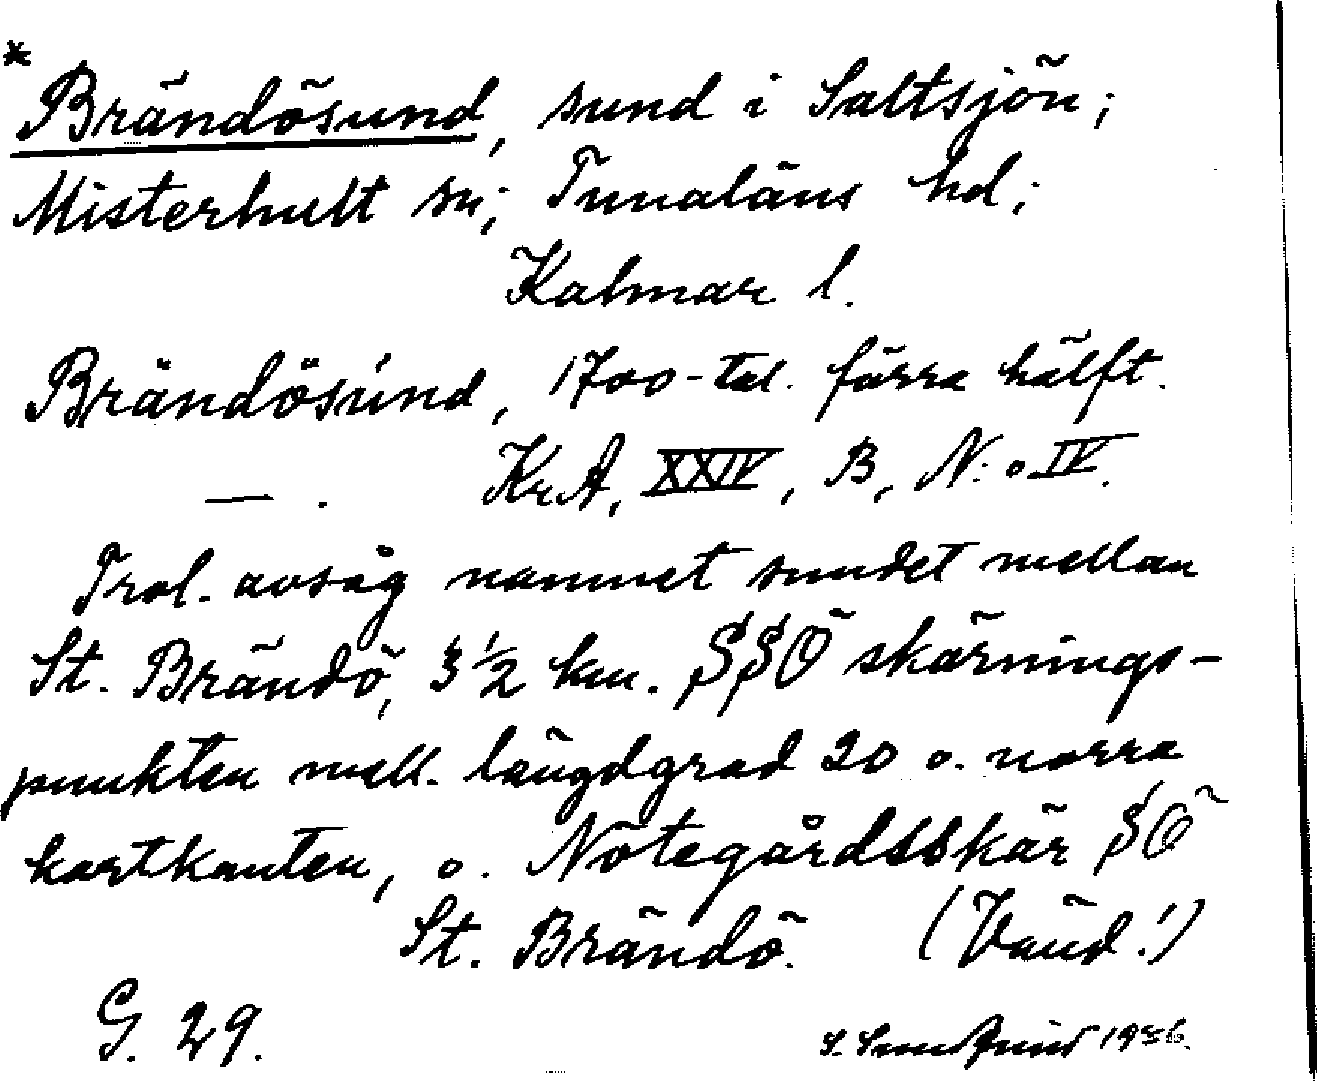 * Brändösund, sund i Saltsjön;
Misterhult sn; Tunaläns hd;
Kalmar l.
Brändösúnd, 1700-tal. förra hälft.
— . KrA, XXIV, B, N:o IV.
Trol. avsåg namnet sundet mellan
St. Brändö, 3 ½ km. SSÖ skärnings-
punkten mell. längdgrad 20 o. norra
kartkanten, o. Nötegårdsskär SÖ
St. Brändö. (Vänd!)
G. 29. 1936.